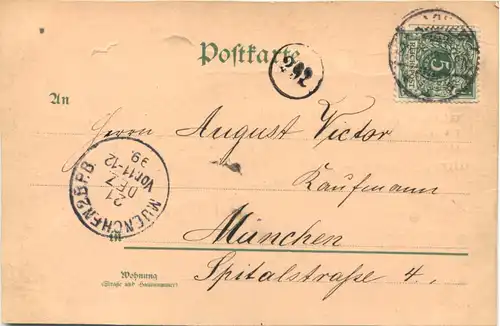 Postkarte
292
5
An
Herrn August Victor
Kaufmann
in
München
Spitalstraße 4.
Wohnung
(Straße und Hausnummer)
MUENCHEN 2 B.P.B.
21
DEZ
Vor. 11-12
99